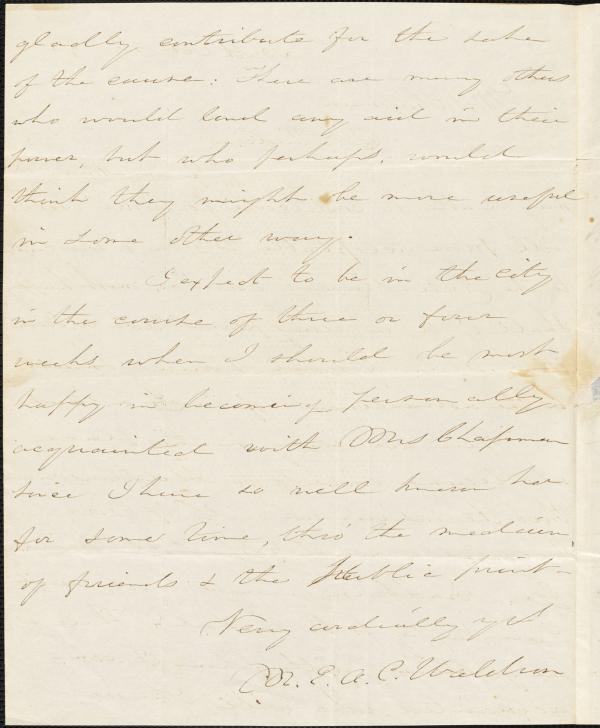 gladly contribute for the sake
of the cause: There are many others
who would lend any aid in their
power, but who perhaps, would
think they might be more useful
in some other way.
I expect to be in the city
in the course of three or four
weeks when I should be most
happy in becoming personally
acquainted with Mrs Chapman
since I have so well known her
for some time, thro' the medium,
of friends & the Public print-
Very cordially yrs
M. E. A. C. Waldron